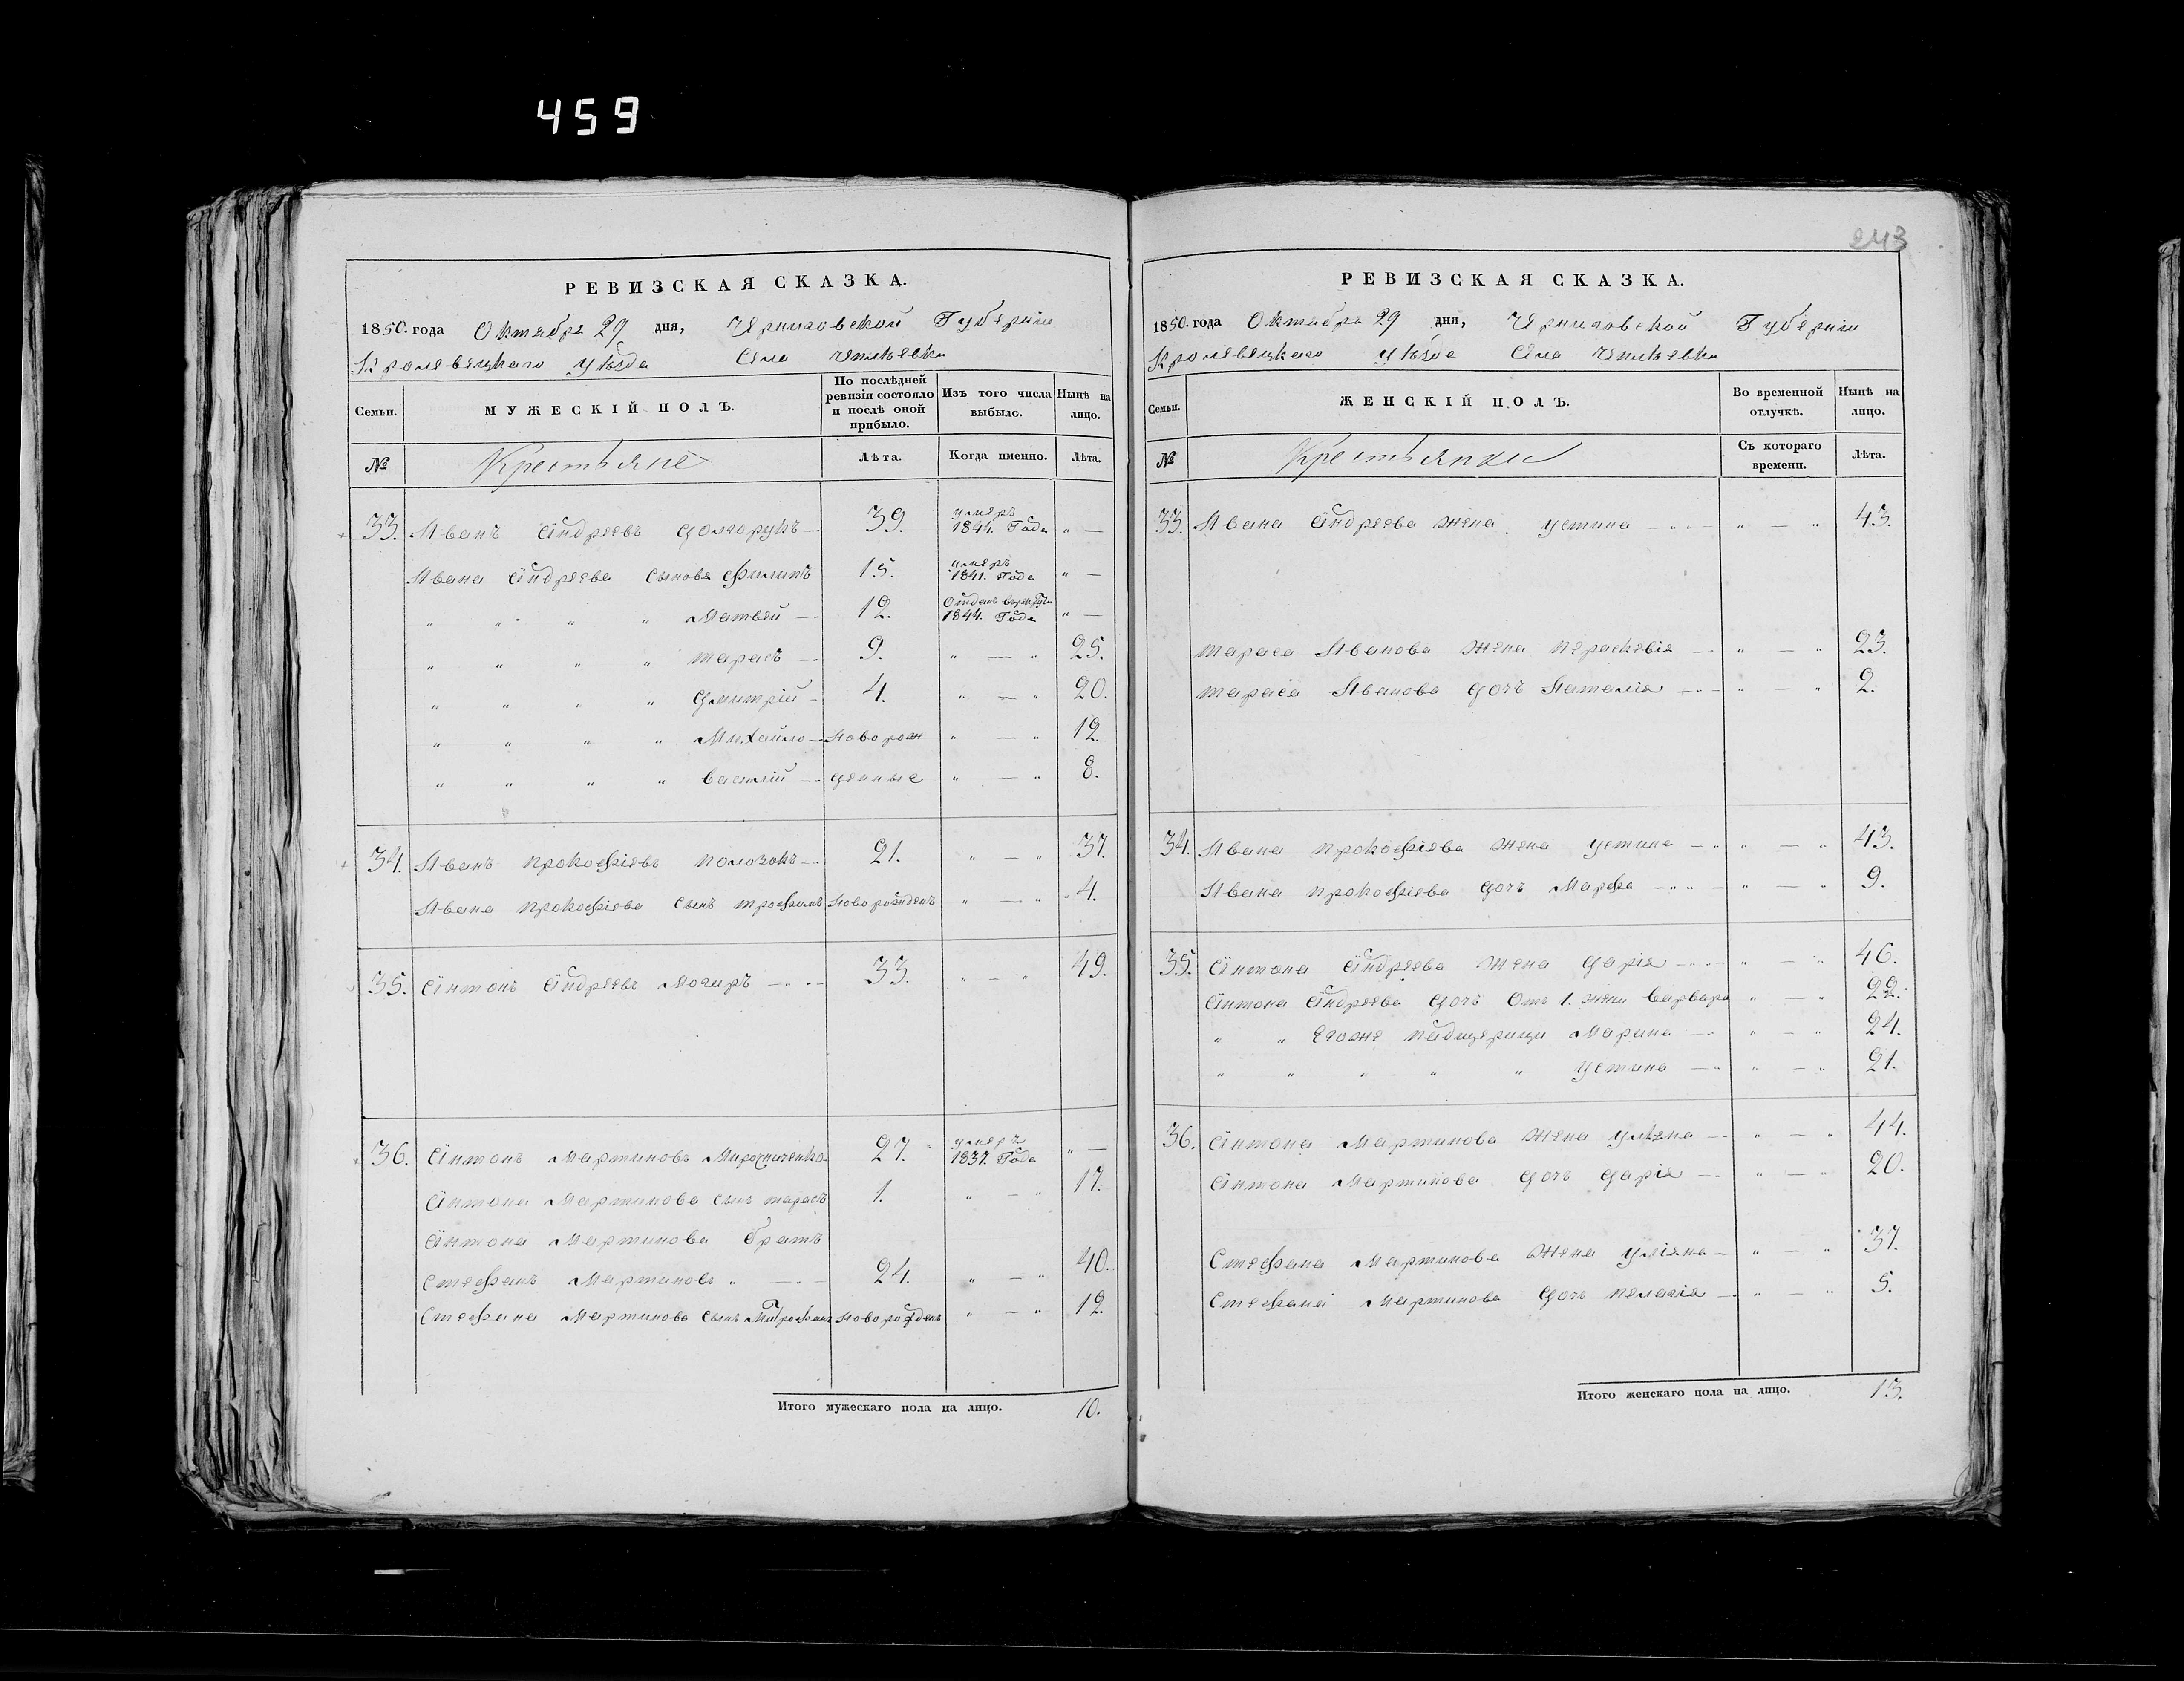 459
РЕВИЗСКАЯ СКАЗКА.
1850. года Октября 29 дня, Черниговской Губернiи
Кролевецкаго уѣзда Села
Семьи.
МУЖЕСКIЙ ПОЛЪ.
По послѣдней ревизiи состояло и послѣ оной прибыло.
Изъ того числа выбыло.
Нынѣ на лицо.
№
Крестьяне
Лѣта.
Когда именно.
Лѣта.
33. Иванъ Андреевъ Долгорукъ — 39. умеръ 1844. Года „ —
Ивана Андреева сыновья Филипъ 15. умеръ 1841. Года „ —
„ „ „ „ Матвей — 12. Отданъ 1844. Года „ —
„ „ „ „ Тарасъ — 9. „ — „ 25.
„ „ „ „ Дмитрiй — 4. „ — „ 20.
„ „ „ „ Михайло — Новорож „ — „ 12.
„ „ „ „ Василiй — денные „ — „ 8.
34. Иванъ Прокофiевъ Полозокъ — 21. „ — „ 37.
Ивана Прокофiева сынъ Трофимъ Новорожденъ „ — „ 4.
35. Антонъ Андреевъ Могиръ — 33. „ — „ 49.
36. Антонъ Мартиновъ Мирошниченко 27. умеръ 1837. Года „ —
Антона Мартинова сынъ Тарасъ 1. „ — „ 17.
Антона Мартинова братъ
Стефанъ Мартиновъ „ — 24. „ — „ 40.
Стефана Мартинова сынъ Митрофанъ Новорожденъ „ — „ 12.
Итого мужескаго пола на лицо. 10.
243
РЕВИЗСКАЯ СКАЗКА.
1850. года Октября 29 дня, Черниговской Губернiи
Кролевецкаго уѣзда Села
Семьи.
ЖЕНСКIЙ ПОЛЪ.
Во временной отлучкѣ.
Нынѣ на лицо.
№
Крестьянки
Съ котораго времени.
Лѣта.
33. Ивана Андреева жена Устина — „ — „ 43.
Тараса Иванова жена Параскевiя — „ — „ 23.
Тараса Иванова дочь Наталiя — „ — „ 2.
34. Ивана Прокофiева жена Устина — „ — „ 43.
Ивана Прокофiева дочь Марфа — „ — „ 9.
35. Антона Андреева жена Дарiя — „ — „ 46.
Антона Андреева дочь отъ 1. жены Варвара „ — „ 22.
„ „ Егоже падщерици Марина — „ — „ 24.
„ „ „ „ „ Устина — „ — „ 21.
36. Антона Мартинова жена Улiяна — „ — „ 44.
Антона Мартинова дочь Дарiя — „ — „ 20.
Стефана Мартинова жена Улiяна — „ — „ 37.
Стефана Мартинова дочь Пелагiя — „ — „ 5.
Итого женскаго пола на лицо. 13.